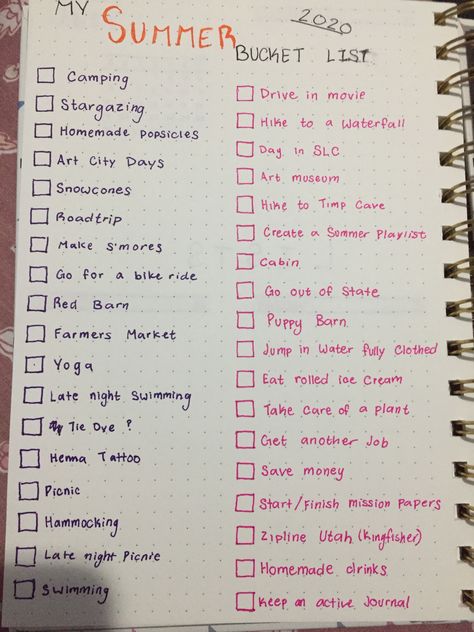 MY SUMMER 2020
BUCKET LIST
Camping
Stargazing
Homemade popsicles
Art City Days
Snowcones
Roadtrip
Make s'mores
Go for a bike ride
Red Barn
Farmers Market
Yoga
Late night Swimming
Tie Dye ?
Henna Tattoo
Picnic
Hammocking
Late night Picnic
Swimming
Drive in movie
Hike to a Waterfall
Day in SLC
Art museum
Hike to Timp Cave
Create a Summer Playlist
Cabin
Go out of State
Puppy Barn
Jump in Water fully Clothed
Eat rolled ice Cream
Take Care of a plant
Get another Job
Save money
Start/Finish mission papers
Zipline Utah (Kingfisher)
Homemade drinks
Keep an active Journal